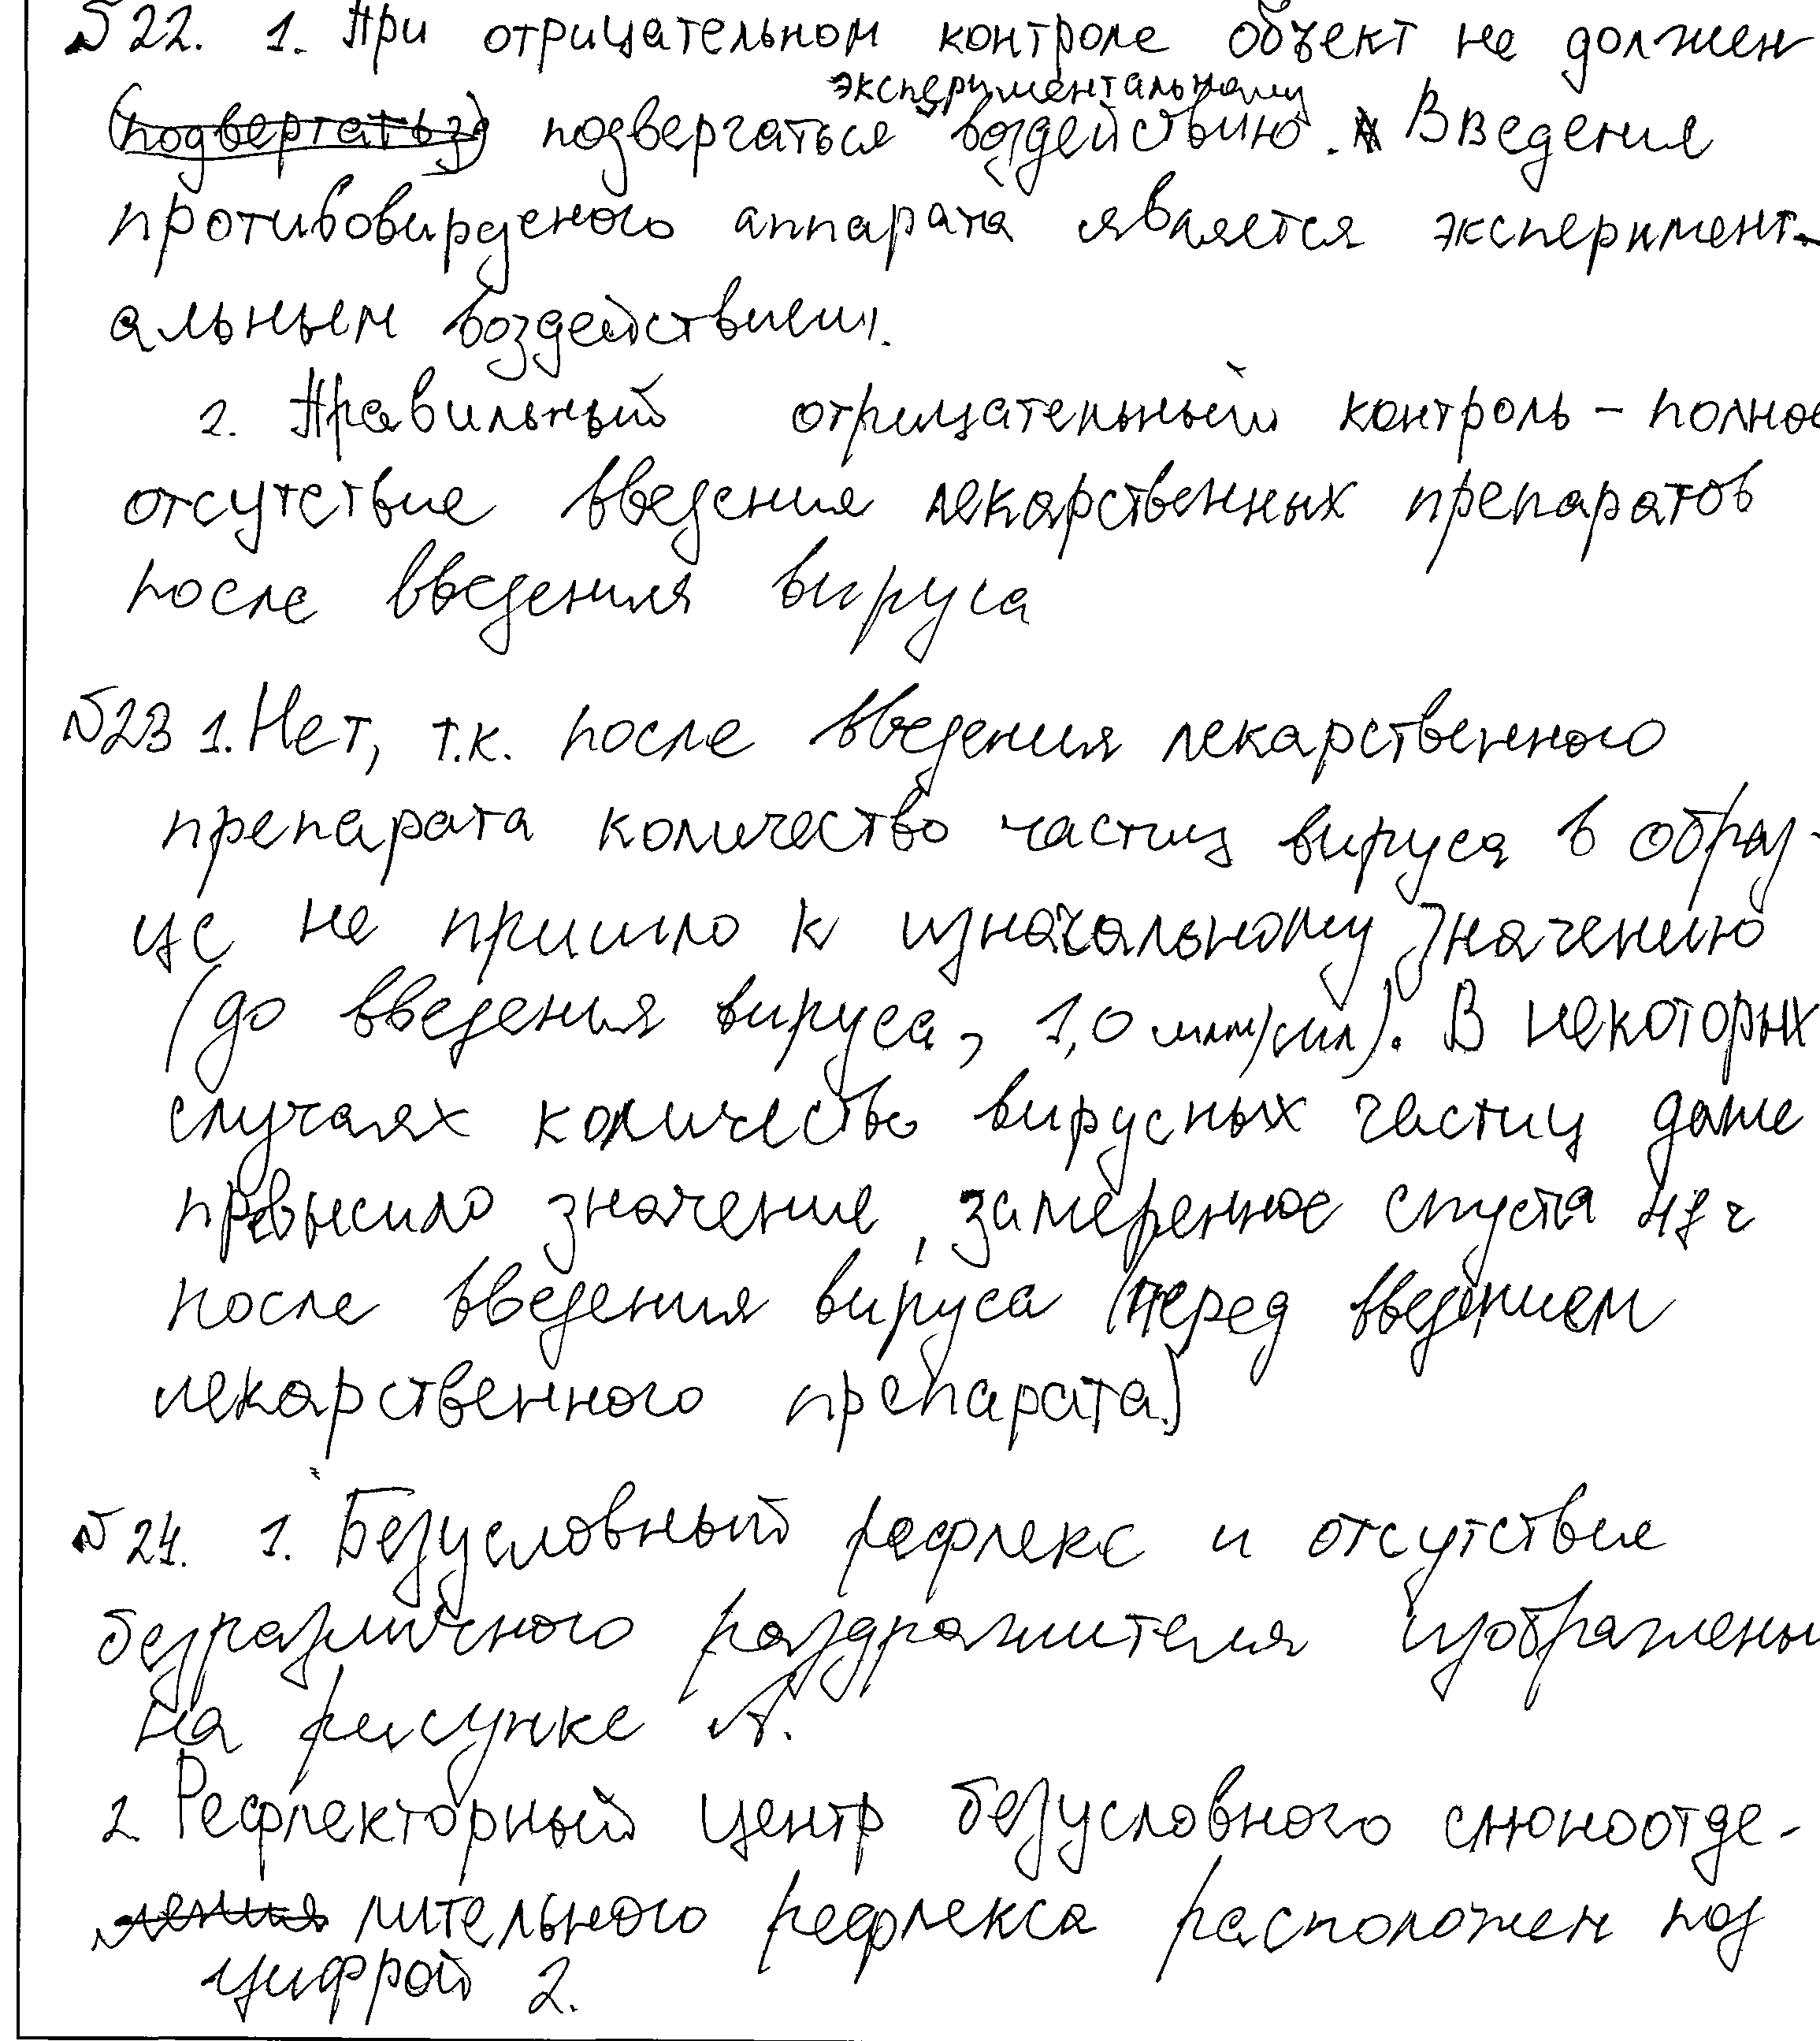 №22. 1. При отрицательном контроле объект не должен
(подвергатьз) подвергаться экспериментальному воздействию. Введения
противовирусного аппарата является эксперимент-
альным воздействием.
2. Правильный отрицательный контроль – полное
отсутствие введения лекарственных препаратов
после введения вируса
№23 1. Нет, т.к. после введения лекарственного
препарата количество частиц вируса в образ-
це не пришло к изначальному значению
(до введения вируса, 1,0 млн/мл). В некоторых
случаях количество вирусных частиц даже
превысило значение, замеренное спустя 48 ч
после введения вируса (перед введением
лекарственного препарата)
№24. 1. Безусловный рефлекс и отсутствие
безразличного раздражителя изображены
на рисунке А.
2 Рефлекторный центр безусловного слюноотде-
ления лительного рефлекса расположен под
цифрой 2.